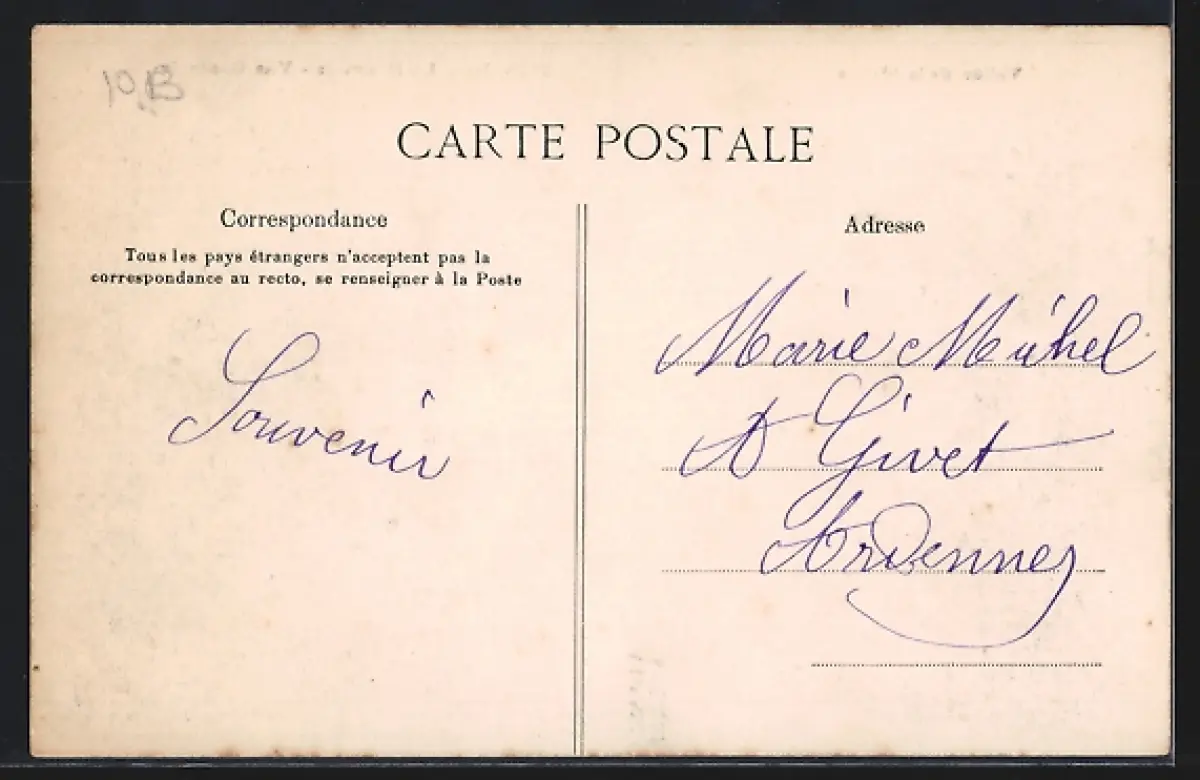 10.B
CARTE POSTALE
Correspondance
Tous les pays étrangers n'acceptent pas la
correspondance au recto, se renseigner à la Poste
Souvenir
Adresse
Marie Michel
A Givet
Ardennes